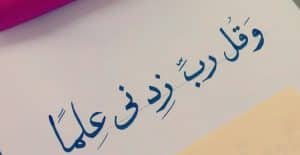 وَقُل رَبِّ زِدنى عِلمًا